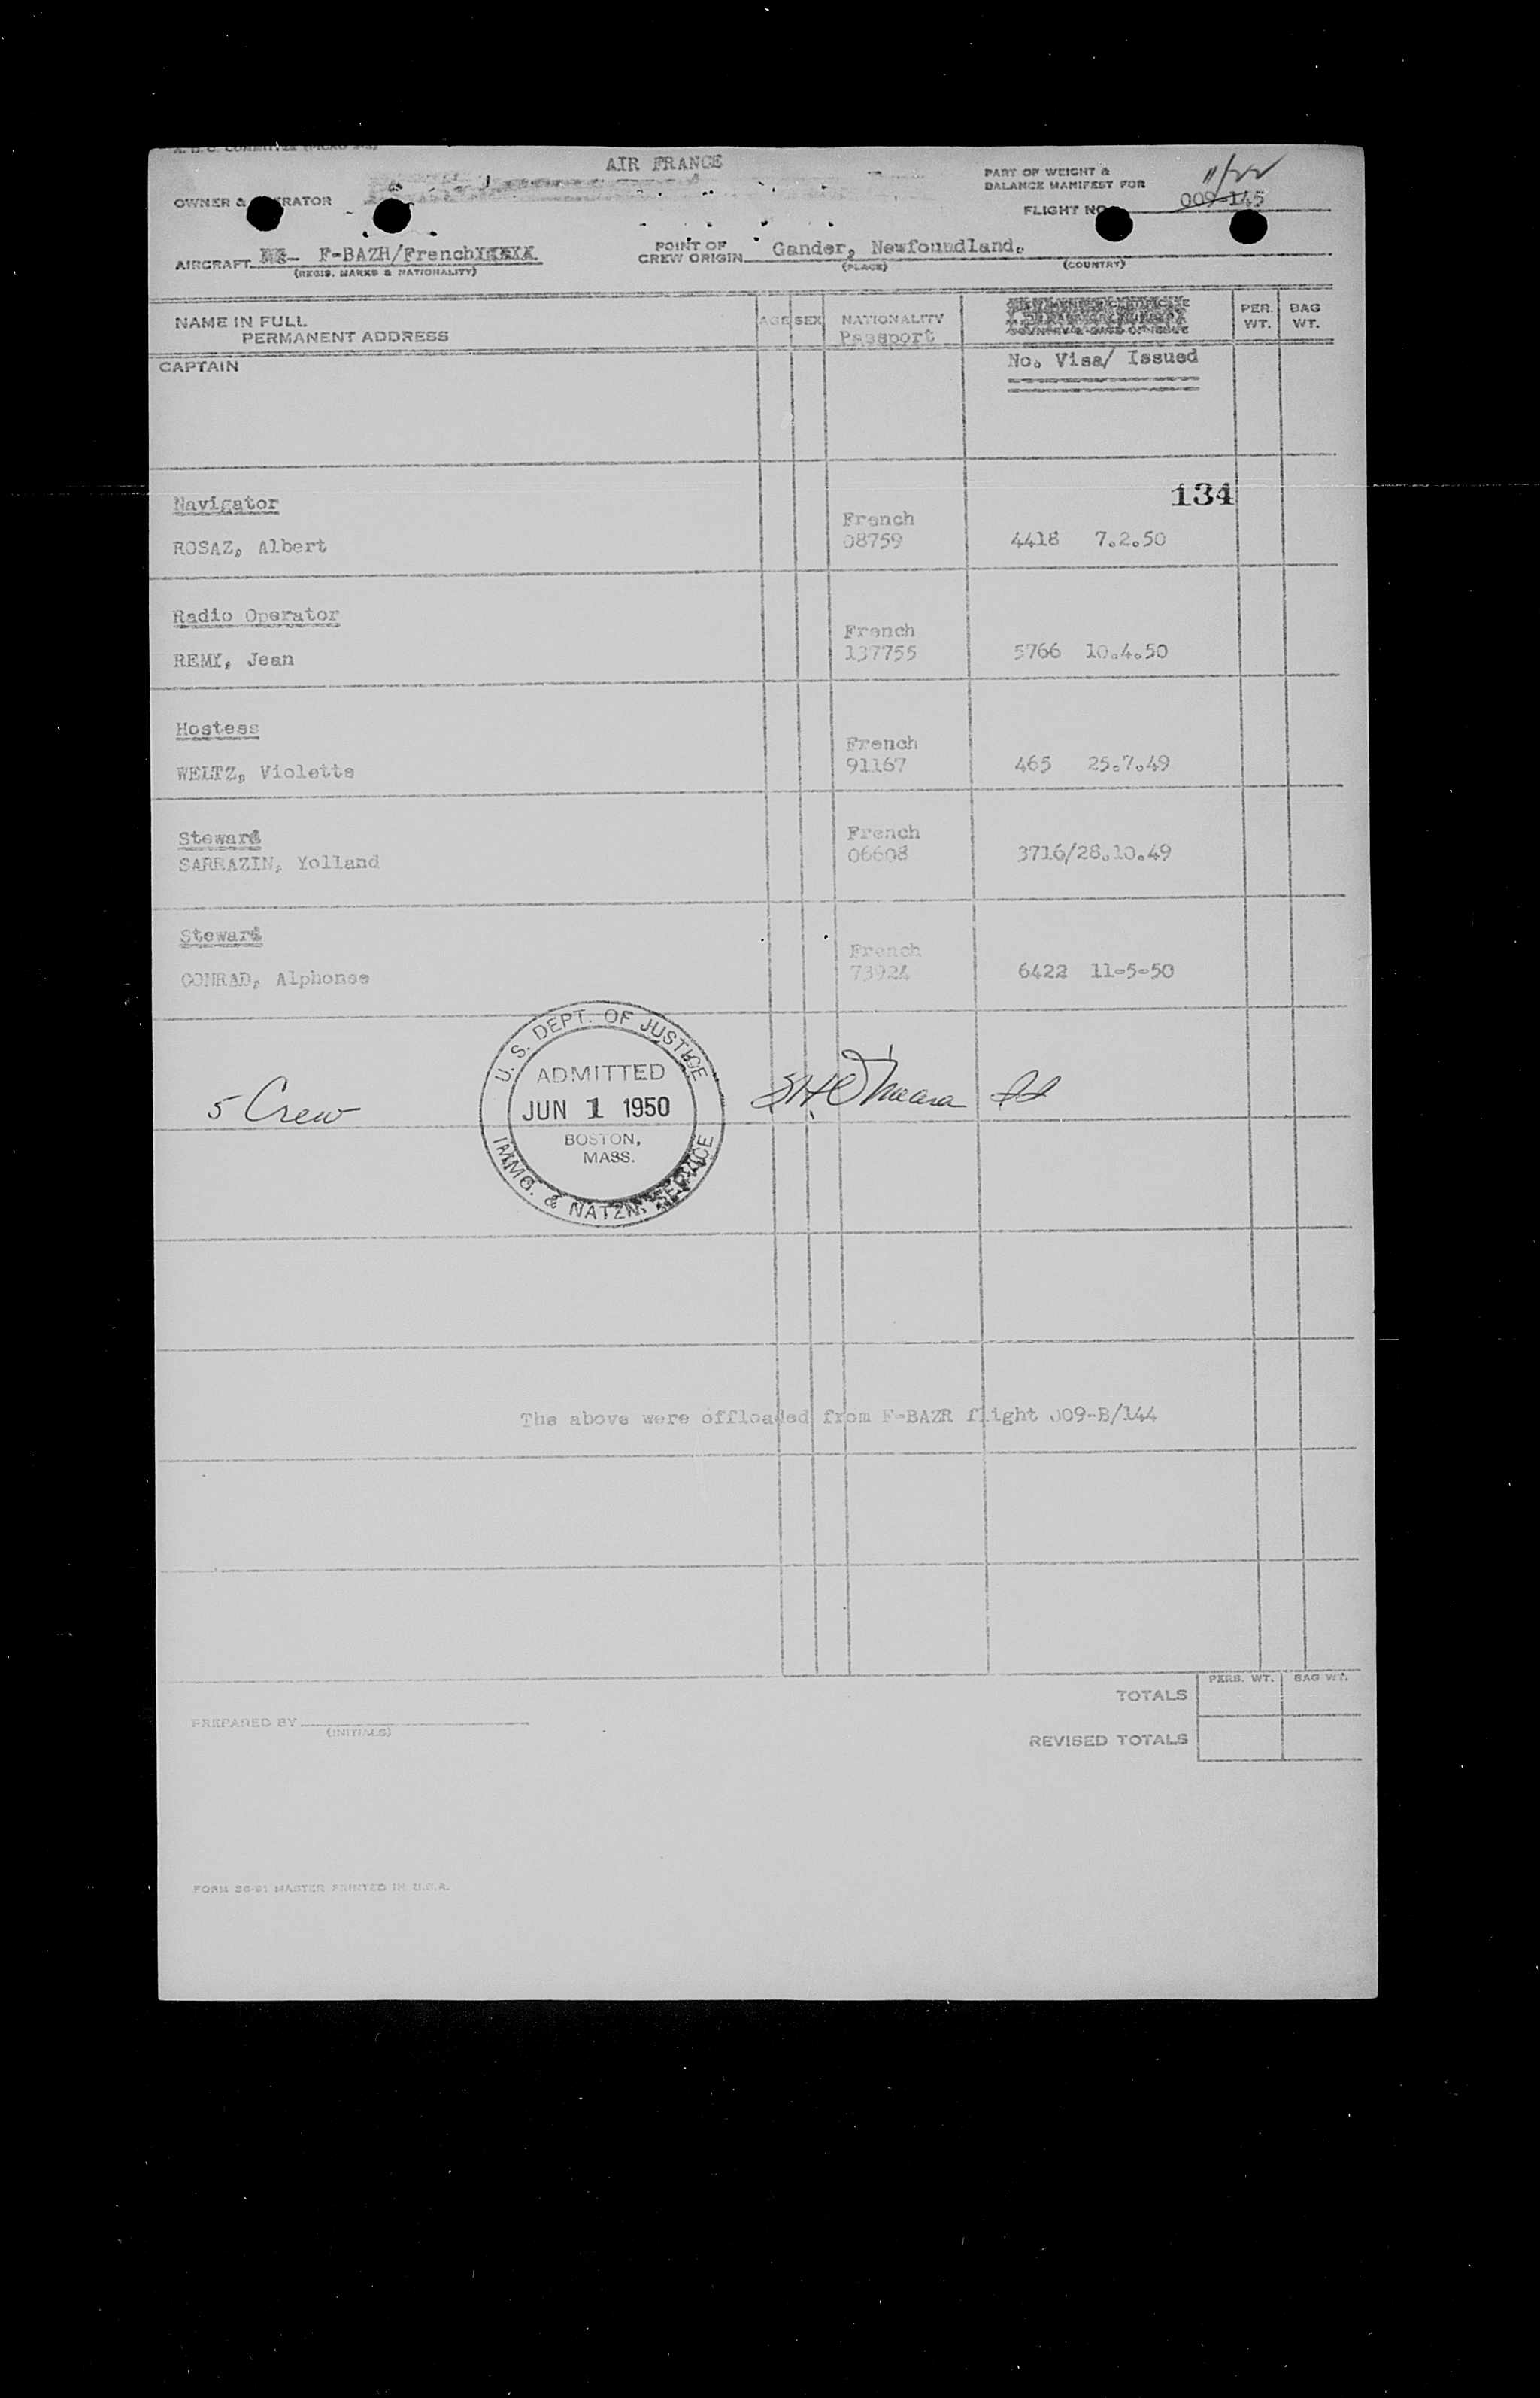 AIR FRANCE
PART OF WEIGHT &
BALANCE MANIFEST FOR
11/22
OWNER & RATOR
FLIGHT NO. 009-145
AIRCRAFT F-BAZR/French
(REGIS. MARKS & NATIONALITY)
POINT OF
CREW ORIGIN Gander, Newfoundland.
(PLACE) (COUNTRY)
NAME IN FULL
PERMANENT ADDRESS
AGE SEX NATIONALITY
Passport
PER. WT. BAG WT.
CAPTAIN
No. Visa/ Issued
134
Navigator
French
ROSAZ, Albert 08759 4418 7.2.50
Radio Operator
French
REMY, Jean 137755 5766 10.4.50
Hostess
French
WELTZ, Violette 91167 465 25.7.49
Steward French
SARRAZIN, Yolland 06608 3716/28.10.49
Steward
French
CONRAD, Alphonse 73924 6422 11-5-50
U. S. DEPT. OF JUSTICE
ADMITTED
JUN 1 1950
BOSTON,
MASS.
IMMG. & NATZN. SERVICE
5 Crew
The above were offloaded from F-BAZR flight 009-B/144
PERS. WT. BAG WT.
TOTALS
PREPARED BY
(INITIALS)
REVISED TOTALS
FORM SG-91 MASTER PRINTED IN U.S.A.